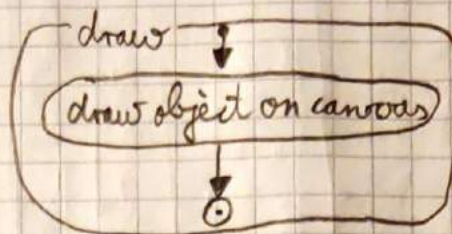 draw
draw object on canvas